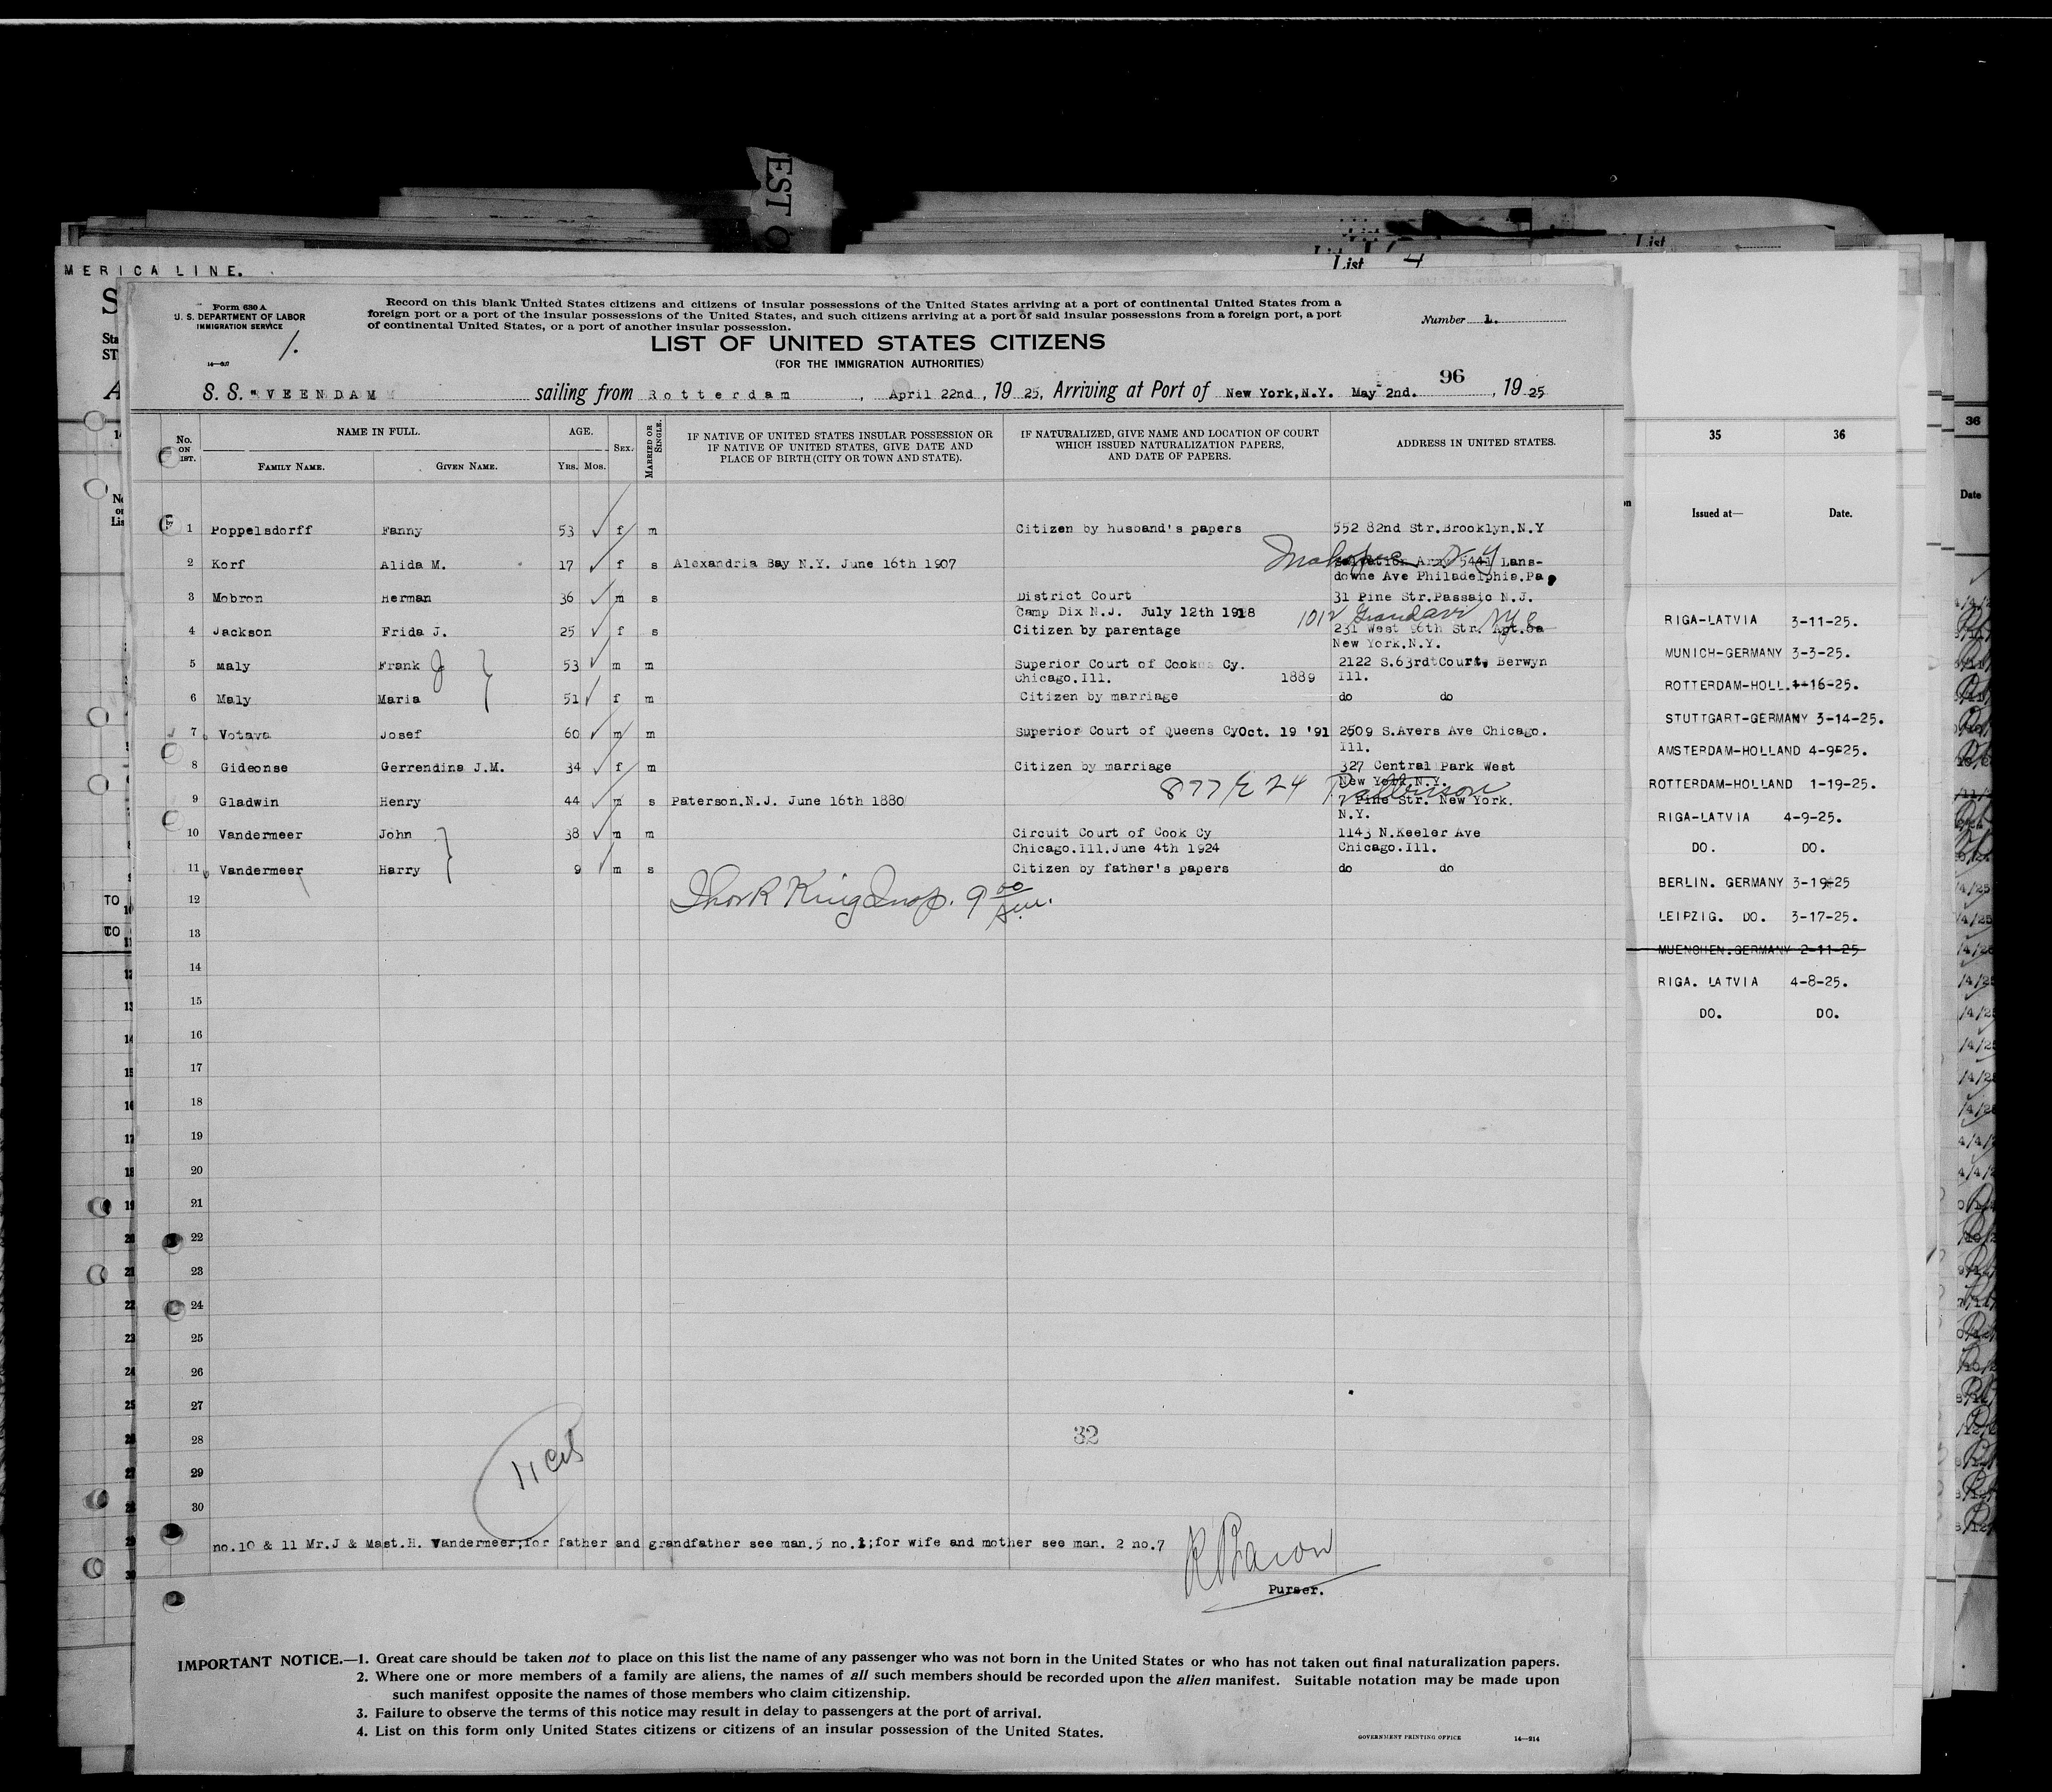 EST O
List
List 4
MERICA LINE.
Form 630 A
U. S. DEPARTMENT OF LABOR
IMMIGRATION SERVICE
1.
Record on this blank United States citizens and citizens of insular possessions of the United States arriving at a port of continental United States from a
foreign port or a port of the insular possessions of the United States, and such citizens arriving at a port of said insular possessions from a foreign port, a port
of continental United States, or a port of another insular possession.
Number 1.
LIST OF UNITED STATES CITIZENS
(FOR THE IMMIGRATION AUTHORITIES)
96
S. S. "VEENDAM sailing from Rotterdam, April 22nd, 1925, Arriving at Port of New York,N.Y. May 2nd., 1925
No. ON LIST. NAME IN FULL. AGE. SEX. MARRIED OR SINGLE. IF NATIVE OF UNITED STATES INSULAR POSSESSION OR IF NATIVE OF UNITED STATES, GIVE DATE AND PLACE OF BIRTH (CITY OR TOWN AND STATE). IF NATURALIZED, GIVE NAME AND LOCATION OF COURT WHICH ISSUED NATURALIZATION PAPERS, AND DATE OF PAPERS. ADDRESS IN UNITED STATES.
FAMILY NAME. GIVEN NAME. YRS. MOS.
1 Poppelsdorff Fanny 53 f m Citizen by husband's papers 552 82nd Str.Brooklyn.N.Y
2 Korf Alida M. 17 f s Alexandria Bay N.Y. June 16th 1907 5441 Lans-
downe Ave Philadelphia.Pa.
3 Mobron Herman 36 m s District Court 31 Pine Str.Passaic N.J.
Camp Dix N.J. July 12th 1918
1012
4 Jackson Frida J. 25 f s Citizen by parentage 231 West 96th Str. Apt.8a
New York.N.Y.
5 Maly Frank J 53 m m Superior Court of Cook Cy. 2122 S.63rdtCourt. Berwyn
Chicago.Ill. 1889 Ill.
6 Maly Maria 51 f m Citizen by marriage do do
7 Votava Josef 60 m m Superior Court of Queens CyOct. 19 '91 2509 S.Avers Ave Chicago.
Ill.
8 Gideonse Gerrendina J.M. 34 f m Citizen by marriage 327 Central Park West
New York.N.Y.
877 E 24 Patterson
9 Gladwin Henry 44 m s Paterson.N.J. June 16th 1880 7 Pine Str. New York.
N.Y.
10 Vandermeer John 38 m m Circuit Court of Cook Cy 1143 N.Keeler Ave
Chicago.Ill.June 4th 1924 Chicago.Ill.
11 Vandermeer Harry 9 m s Citizen by father's papers do do
12 Thos R King Insp. 9 00
13
14
15
16
17
18
19
20
21
22
23
24
25
26
27
28 32
29
30
11 Cit
no.10 & 11 Mr.J & Mast.H. Vandermeer;for father and grandfather see man.5 no.1;for wife and mother see man. 2 no.7
Purser.
IMPORTANT NOTICE.—1. Great care should be taken not to place on this list the name of any passenger who was not born in the United States or who has not taken out final naturalization papers.
2. Where one or more members of a family are aliens, the names of all such members should be recorded upon the alien manifest. Suitable notation may be made upon
such manifest opposite the names of those members who claim citizenship.
3. Failure to observe the terms of this notice may result in delay to passengers at the port of arrival.
4. List on this form only United States citizens or citizens of an insular possession of the United States.
GOVERNMENT PRINTING OFFICE 14—214
35 36
Issued at— Date.
RIGA-LATVIA 3-11-25.
MUNICH-GERMANY 3-3-25.
ROTTERDAM-HOLL. 1-16-25.
STUTTGART-GERMANY 3-14-25.
AMSTERDAM-HOLLAND 4-9-25.
ROTTERDAM-HOLLAND 1-19-25.
RIGA-LATVIA 4-9-25.
DO. DO.
BERLIN. GERMANY 3-19-25
LEIPZIG. DO. 3-17-25.
MUENCHEN.GERMANY 2-11-25
RIGA. LATVIA 4-8-25.
DO. DO.
36
Date